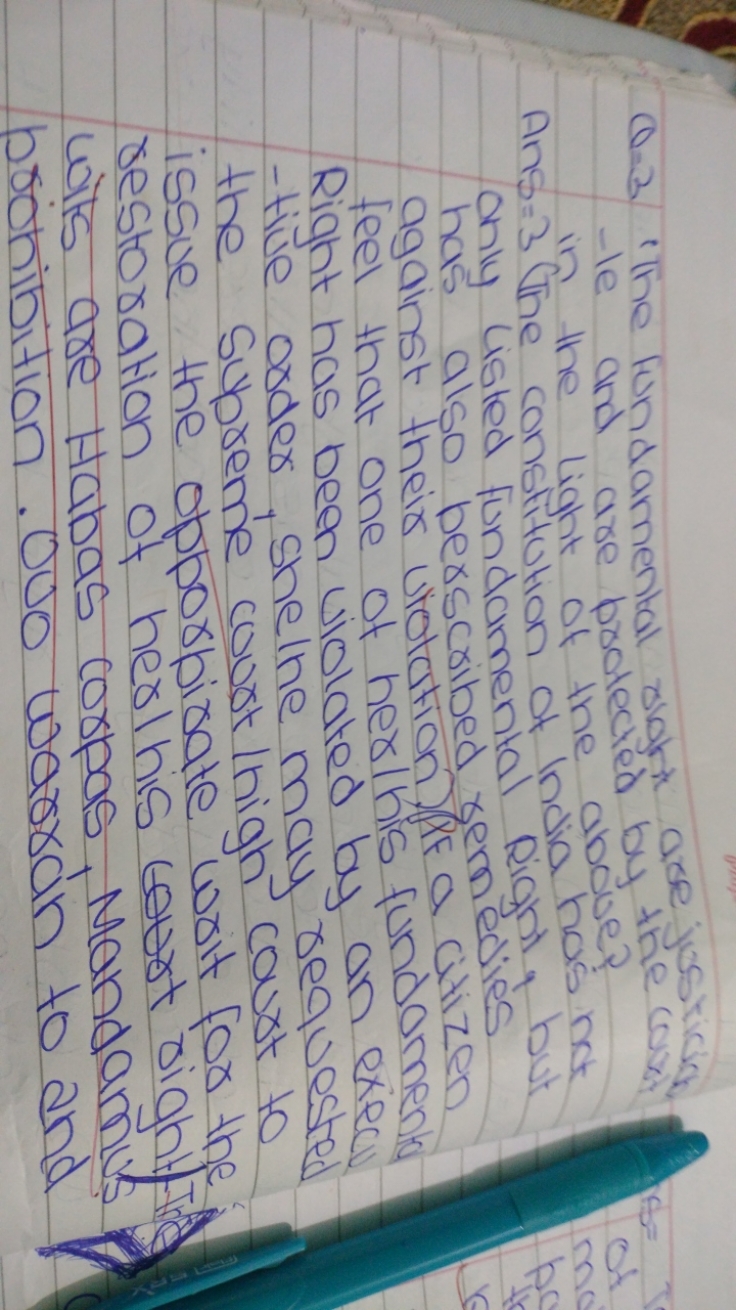 Q=3 "The fundamental right are justicia
-le and are protected by the court
in the light of the above?
Ans=3 (The constitution of India has not
only listed fundamental Right, but
has also berscribed remedies
against their violation) (If a citizen
feel that one of her/his fundamenta
Right has been violated by an execu
-tive order, she/he may requested
the supreme court/high court to
issue the opporbirate writ for the
restoration of her/his right) The
wits are Habas corpas, Mandamus
prohibition. Quo warran to and